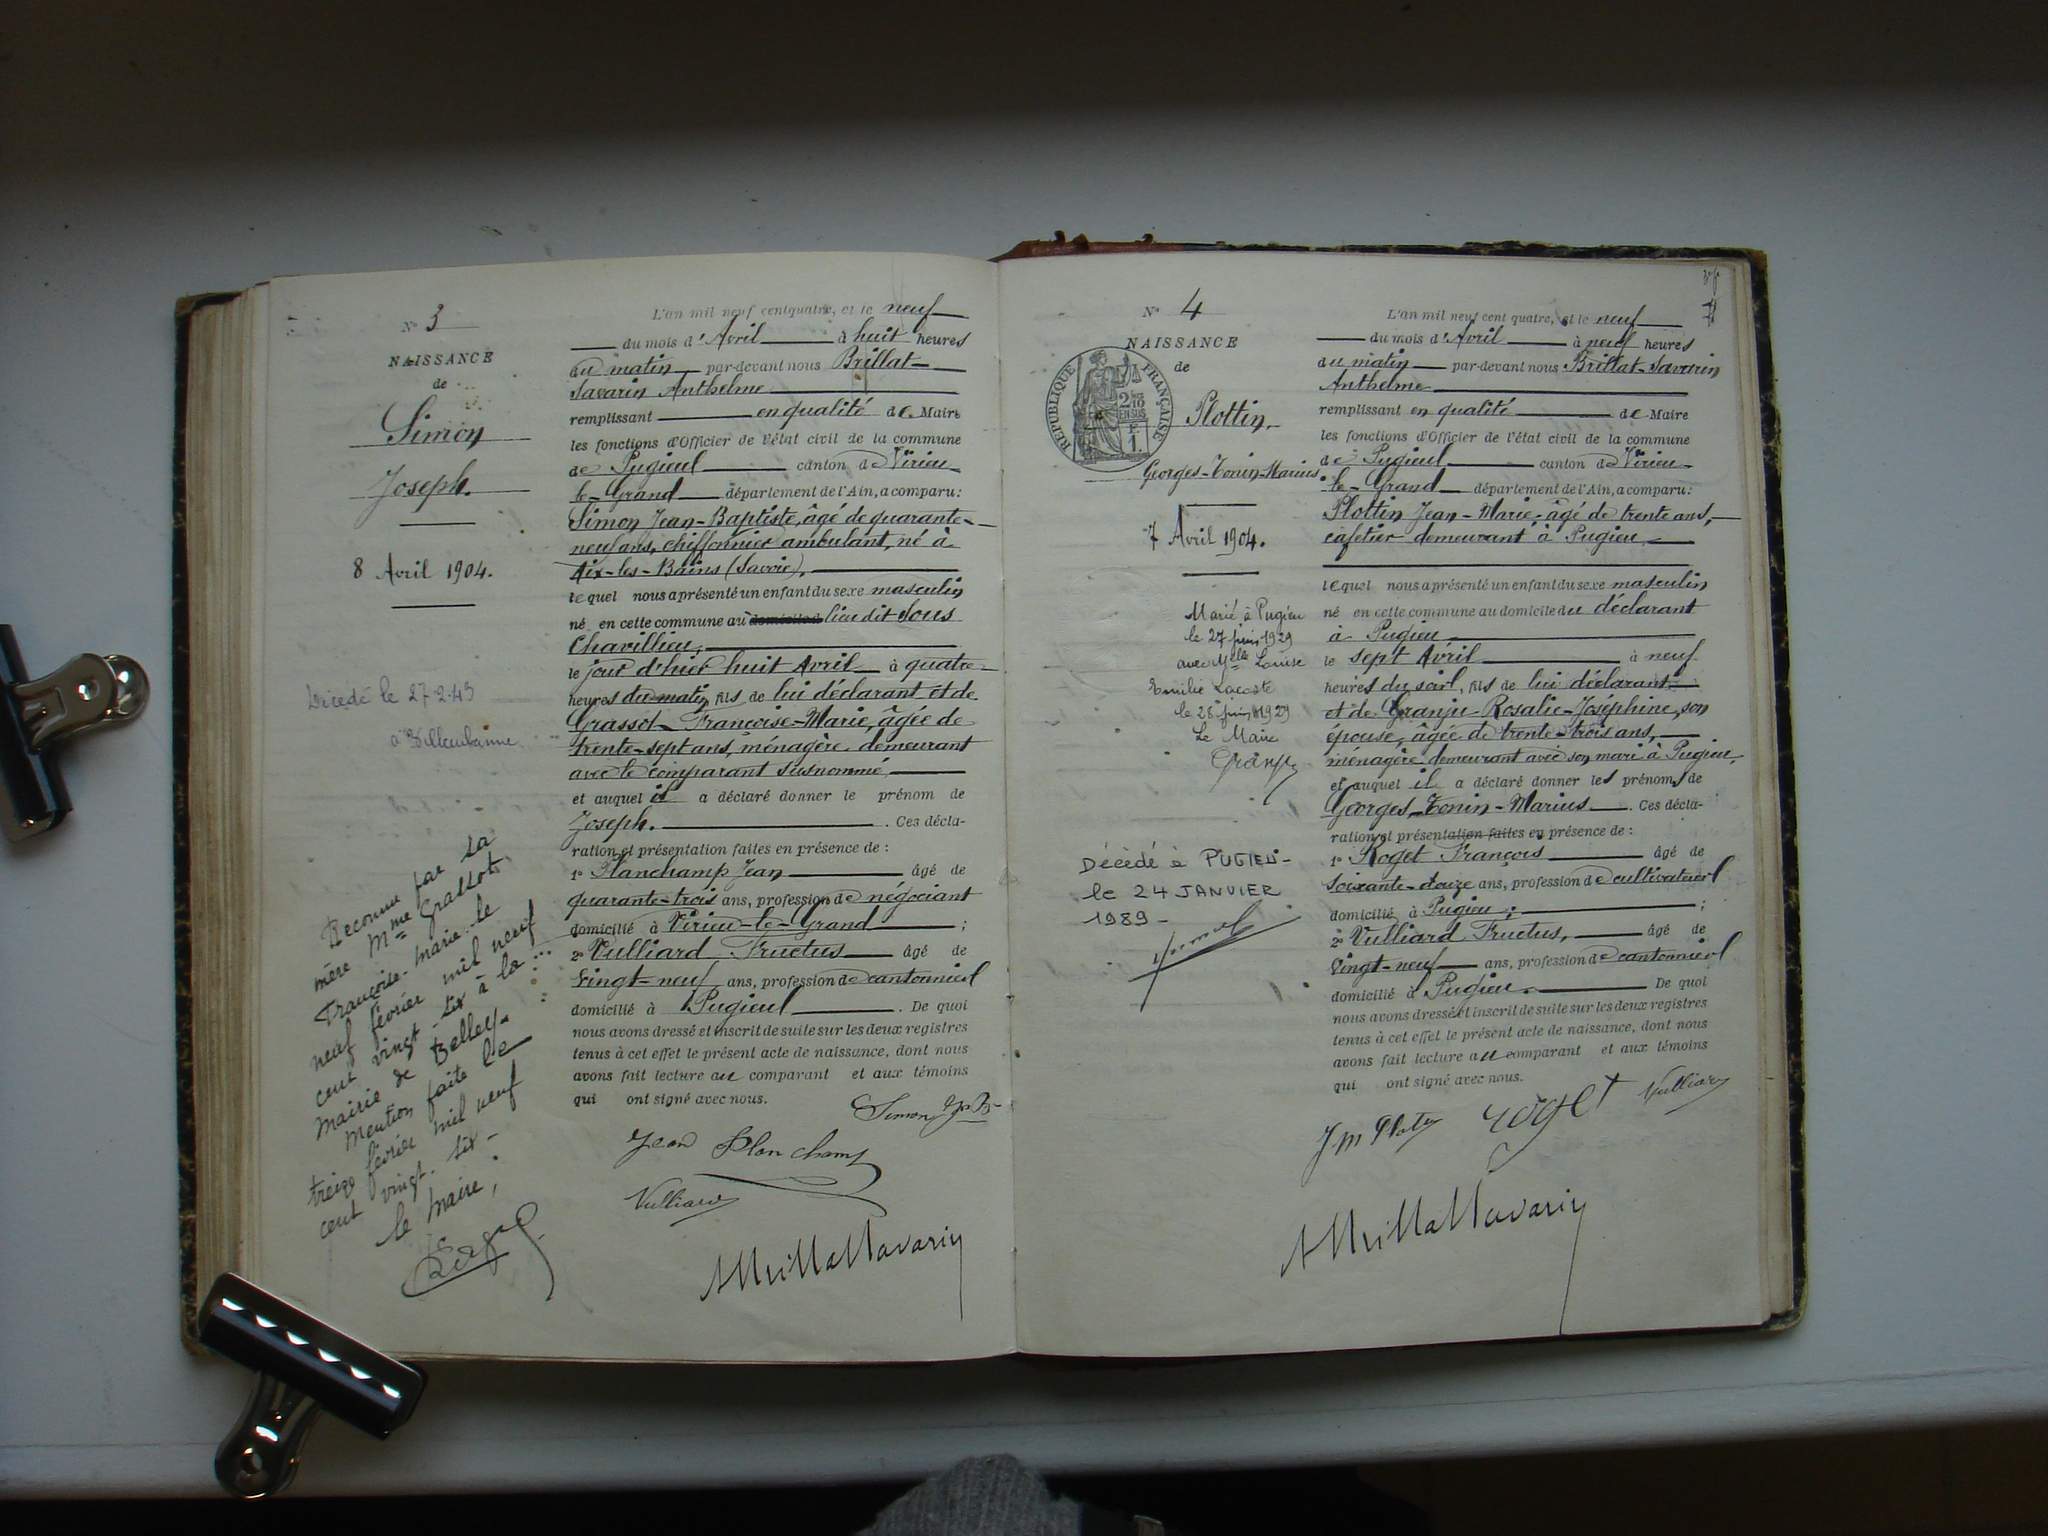 N° 3
NAISSANCE
de
Simon
Joseph.
8 Avril 1904.
Décédé le 27-2-43
à Villeurbanne
Reconnu par sa
mère Mme Grassot
Françoise-Marie le
neuf février mil neuf
cent vingt-six à la
mairie de Belley.
Mention faite le
treize février mil neuf
cent vingt-six-
le Maire,
L'an mil neuf cent quatre, et le neuf
du mois d'Avril à huit heures
du matin par-devant nous Brillat-
Savarin Anthelme
remplissant en qualité de Maire
les fonctions d'Officier de l'état civil de la commune
de Pugieu canton de Virieu-
le-Grand département de l'Ain, a comparu:
Simon Jean-Baptiste, âgé de quarante-
neuf ans, chiffonnier ambulant, né à
Aix-les-Bains (Savoie),
lequel nous a présenté un enfant du sexe masculin
né en cette commune au domicile d lieu dit Sous
Chavillieu,
le jour d'hier huit Avril à quatre
heures du matin, fils de lui déclarant et de
Grassot Françoise-Marie, âgée de
trente-sept ans, ménagère demeurant
avec le comparant susnommé,
et auquel il a déclaré donner le prénom de
Joseph. Ces décla-
ration et présentation faites en présence de :
1° Planchamp Jean âgé de
quarante-trois ans, profession de négociant
domicilié à Virieu-le-Grand ;
2° Vulliard Fructus âgé de
vingt-neuf ans, profession de cantonnier
domicilié à Pugieu . De quoi
nous avons dressé et inscrit de suite sur les deux registres
tenus à cet effet le présent acte de naissance, dont nous
avons fait lecture au comparant et aux témoins
qui ont signé avec nous.
Simon
Jean Planchamp
Vulliard
ABrillatSavarin
N° 4
NAISSANCE
de
RÉPUBLIQUE FRANÇAISE
2/10 EN SUS
F. 1.
Plottin,
Georges-Tonin-Marius
7 Avril 1904.
Marié à Pugieu
le 27 juin 1929
avec Melle Louise
Emilie Lacoste
le 28 juin 1929
Le Maire
Décédé à PUGIEU-
le 24 JANVIER
1989-
L'an mil neuf cent quatre, et le neuf
du mois d'Avril à neuf heures
du matin par-devant nous Brillat-Savarin
Anthelme
remplissant en qualité de Maire
les fonctions d'Officier de l'état civil de la commune
de Pugieu canton de Virieu-
le-Grand département de l'Ain, a comparu:
Plottin Jean-Marie, âgé de trente ans,
cafetier demeurant à Pugieu
lequel nous a présenté un enfant du sexe masculin
né en cette commune au domicile du déclarant
à Pugieu
le sept Avril à neuf
heures du soir, fils de lui déclarant
et de Granju Rosalie-Joséphine, son
épouse, âgée de trente-trois ans,
ménagère demeurant avec son mari à Pugieu,
et auquel il a déclaré donner les prénoms de
Georges-Tonin-Marius . Ces décla-
ration et présentation faites en présence de :
1° Roget François âgé de
soixante-douze ans, profession de cultivateur
domicilié à Pugieu ;
2° Vulliard Fructus, âgé de
vingt-neuf ans, profession de cantonnier
domicilié à Pugieu. De quoi
nous avons dressé et inscrit de suite sur les deux registres
tenus à cet effet le présent acte de naissance, dont nous
avons fait lecture au comparant et aux témoins
qui ont signé avec nous.
J M Plottin Roget Vulliard
ABrillatSavarin